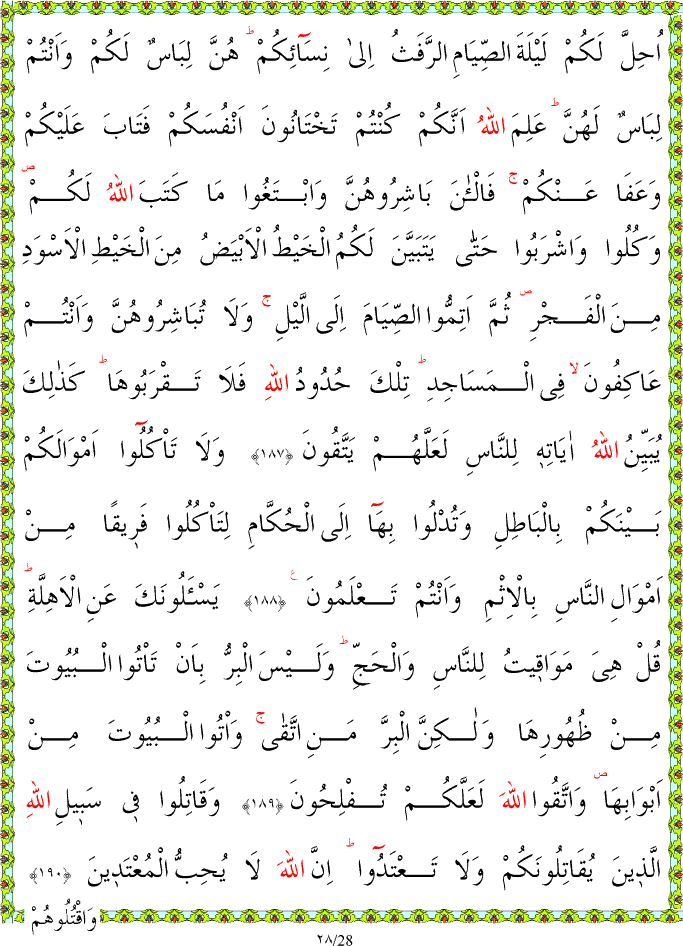 اُحِلَّ لَكُمْ لَيْلَةَ الصِّيَامِ الرَّفَثُ اِلٰى نِسَٓائِكُمْۜ هُنَّ لِبَاسٌ لَكُمْ وَاَنْتُمْ
لِبَاسٌ لَهُنَّؕ عَلِمَ اللّٰهُ اَنَّكُمْ كُنْتُمْ تَخْتَانُونَ اَنْفُسَكُمْ فَتَابَ عَلَيْكُمْ
وَعَفَا عَنْكُمْۚ فَالْـٰٔنَ بَاشِرُوهُنَّ وَابْتَغُوا مَا كَتَبَ اللّٰهُ لَكُمْۖ
وَكُلُوا وَاشْرَبُوا حَتّٰى يَتَبَيَّنَ لَكُمُ الْخَيْطُ الْاَبْيَضُ مِنَ الْخَيْطِ الْاَسْوَدِ
مِنَ الْفَجْرِۖ ثُمَّ اَتِمُّوا الصِّيَامَ اِلَى الَّيْلِۚ وَلَا تُبَاشِرُوهُنَّ وَاَنْتُمْ
عَاكِفُونَۙ فِى الْمَسَاجِدِؕ تِلْكَ حُدُودُ اللّٰهِ فَلَا تَقْرَبُوهَاؕ كَذٰلِكَ
يُبَيِّنُ اللّٰهُ اٰيَاتِهٖ لِلنَّاسِ لَعَلَّهُمْ يَتَّقُونَ ﴿١٨٧﴾ وَلَا تَاْكُلُٓوا اَمْوَالَكُمْ
بَيْنَكُمْ بِالْبَاطِلِ وَتُدْلُوا بِهَٓا اِلَى الْحُكَّامِ لِتَاْكُلُوا فَرٖيقًا مِنْ
اَمْوَالِ النَّاسِ بِالْاِثْمِ وَاَنْتُمْ تَعْلَمُونَ ﴿١٨٨﴾ ع يَسْـَٔلُونَكَ عَنِ الْاَهِلَّةِؕ
قُلْ هِىَ مَوَاقٖيتُ لِلنَّاسِ وَالْحَجِّؕ وَلَيْسَ الْبِرُّ بِاَنْ تَاْتُوا الْبُيُوتَ
مِنْ ظُهُورِهَا وَلٰكِنَّ الْبِرَّ مَنِ اتَّقٰىۚ وَاْتُوا الْبُيُوتَ مِنْ
اَبْوَابِهَاۖ وَاتَّقُوا اللّٰهَ لَعَلَّكُمْ تُفْلِحُونَ ﴿١٨٩﴾ وَقَاتِلُوا فٖى سَبٖيلِ اللّٰهِ
الَّذٖينَ يُقَاتِلُونَكُمْ وَلَا تَعْتَدُٓواؕ اِنَّ اللّٰهَ لَا يُحِبُّ الْمُعْتَدٖينَ ﴿١٩٠﴾
وَاقْتُلُوهُمْ
٢٨/28